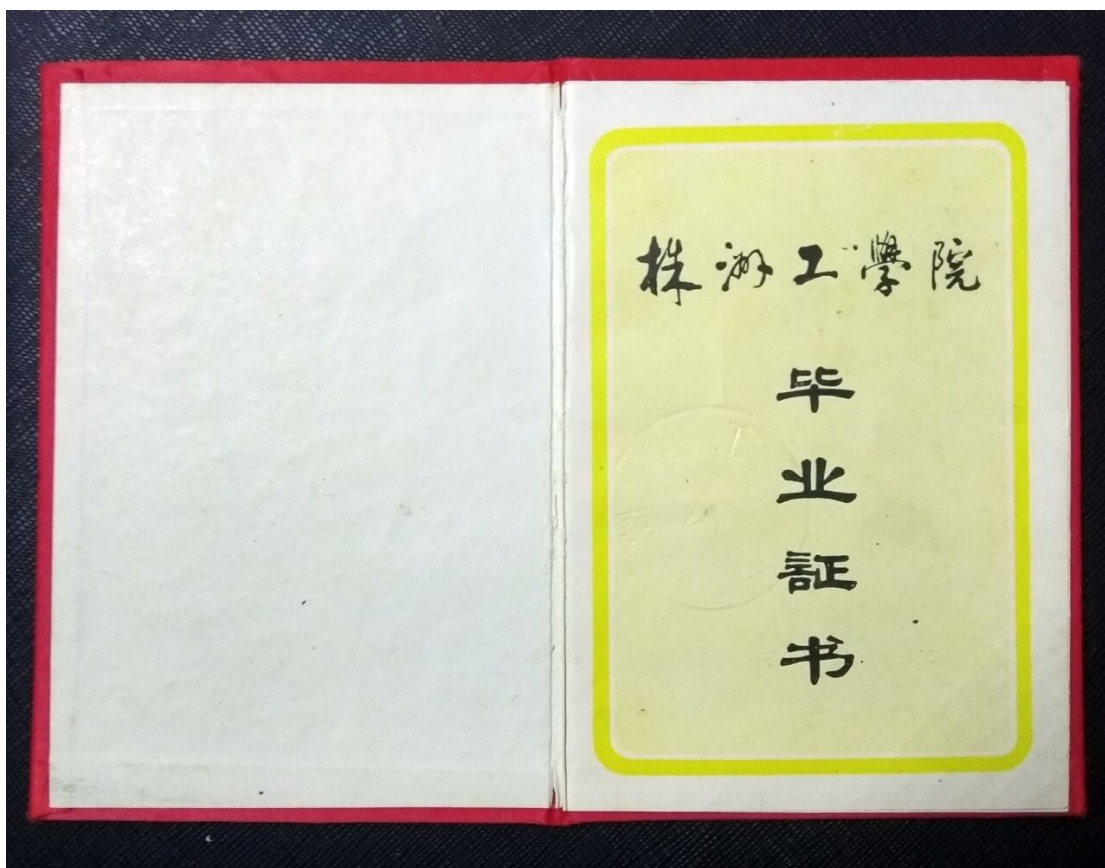 株洲工學院
毕
业
証
书